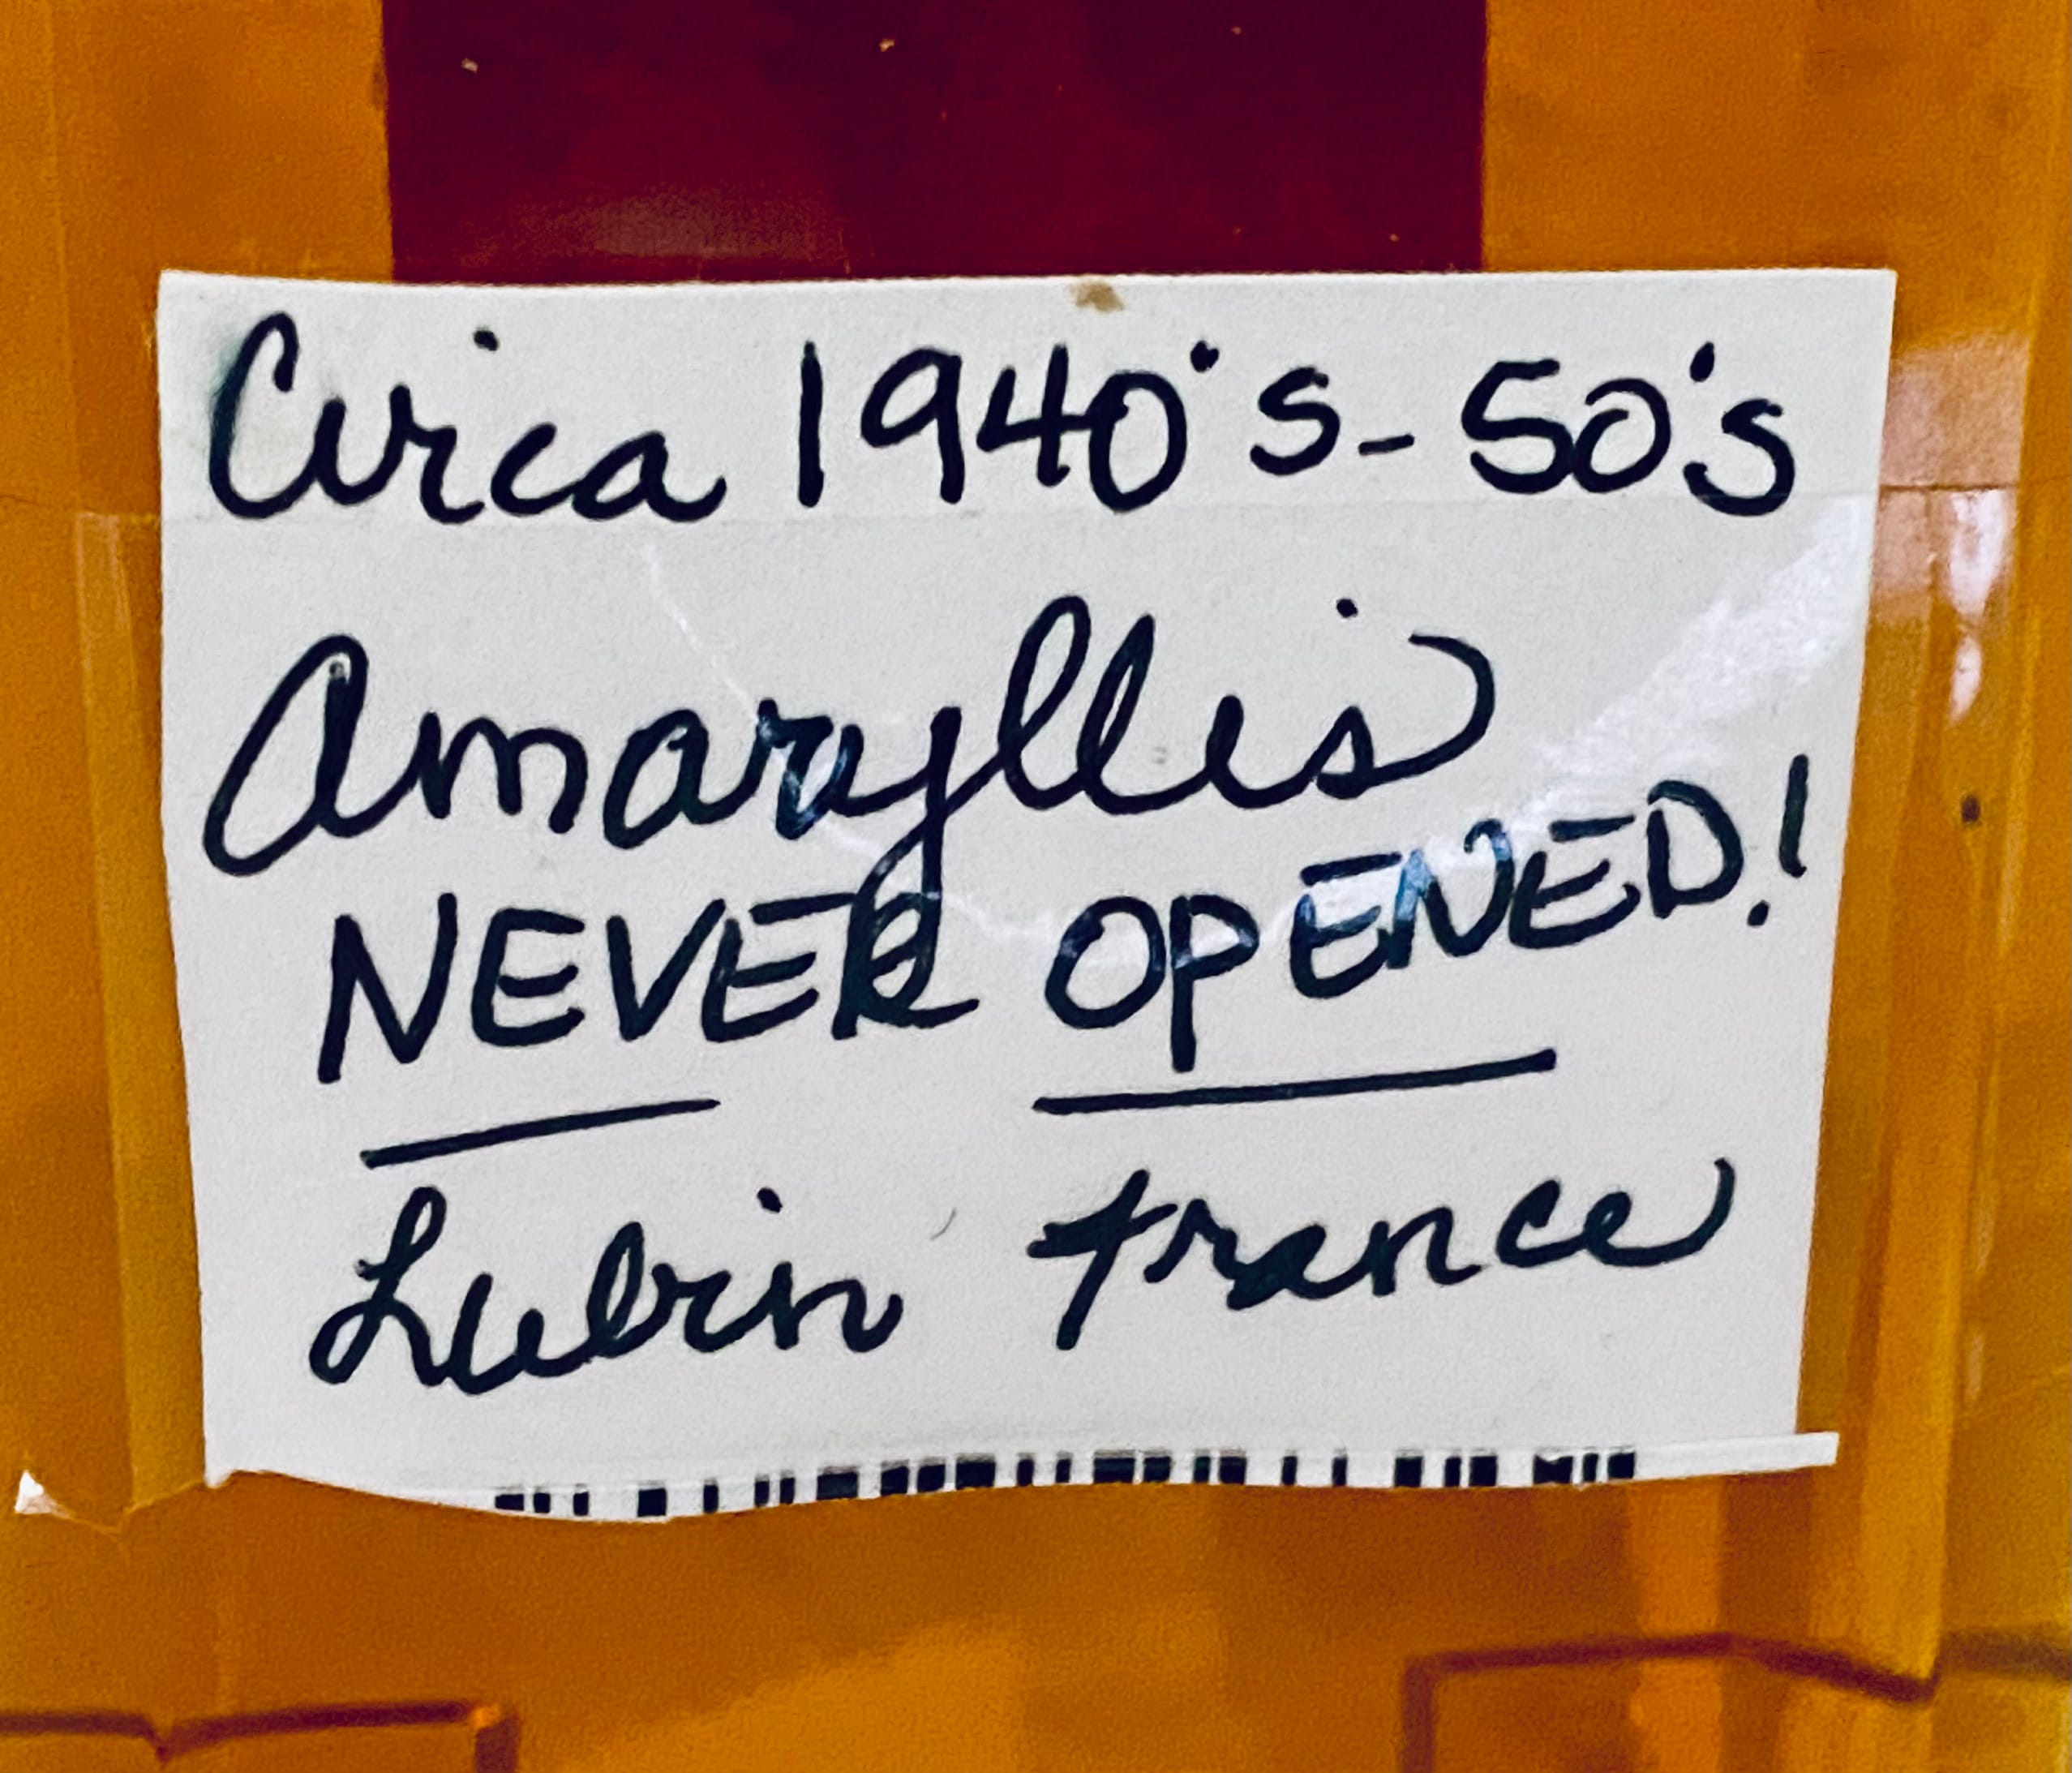 Circa 1940's-50's
Amaryllis
NEVER OPENED!
Lubin France